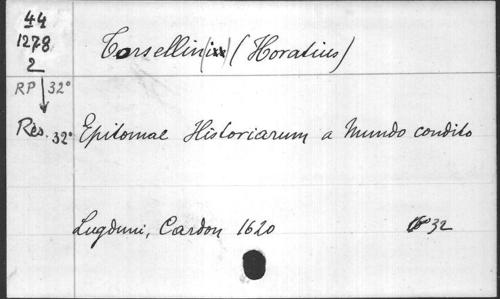 44
1278
2
Torsellin(ius) (Horatius)
RP 32°
Rés. 32°
Epitomae Historiarum a Mundo condito
Lugduni, Cardon 1620
32